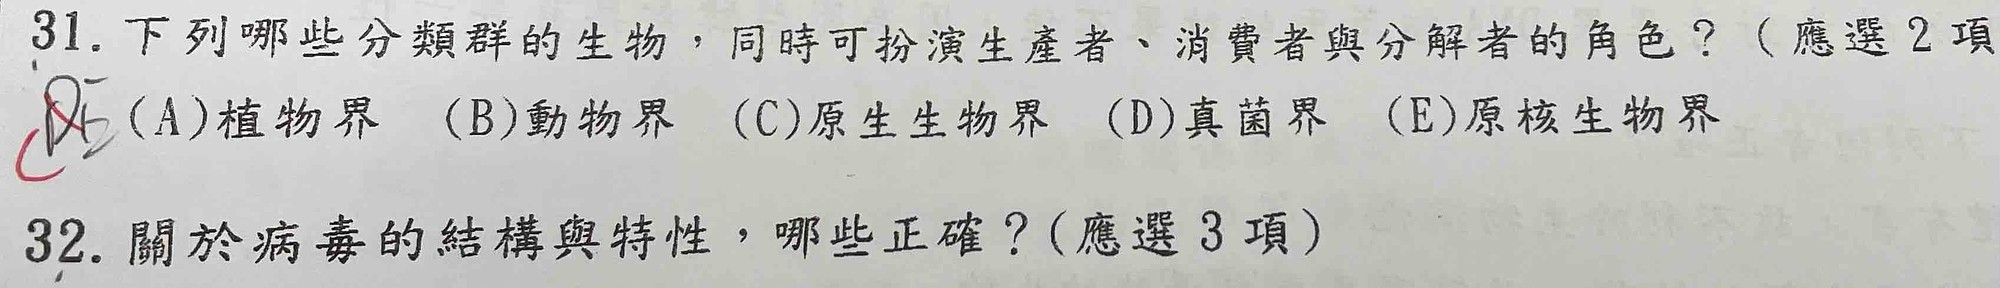 31. 下列哪些分類群的生物，同時可扮演生產者、消費者與分解者的角色？（應選 2 項
(A)植物界 (B)動物界 (C)原生生物界 (D)真菌界 (E)原核生物界
32. 關於病毒的結構與特性，哪些正確？(應選 3 項)